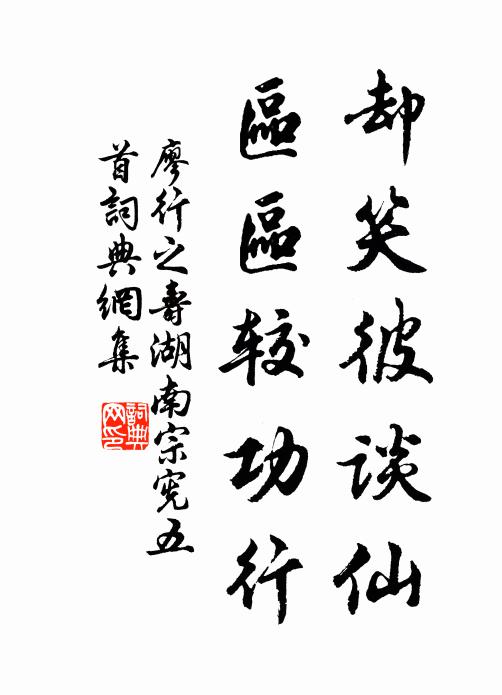 却笑彼谈仙
區區较功行
廖行之壽湖南宗宪五
首詞典網集
詞典网印